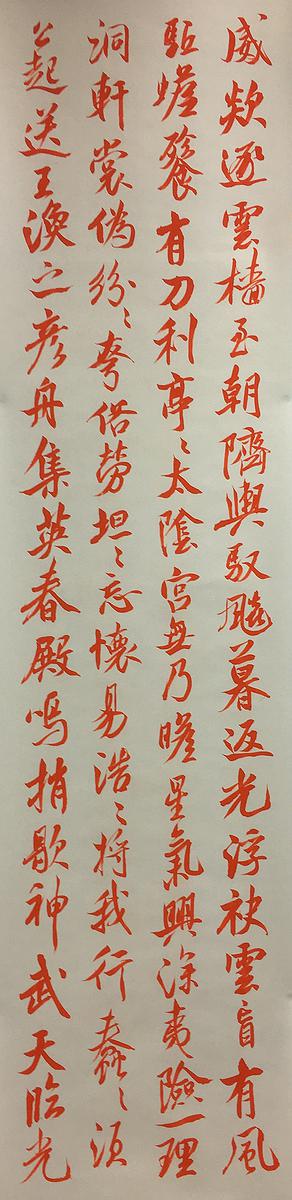 威欻逐雲檣至朝隮輿馭飈暮返光浮袂雲盲有風
駈蟾餮有刀利亭〻太陰宮無乃瞻星氣興深夷險一理
洞軒裳偽紛〻夸俗勞坦〻忘懷易浩〻將我行蠢〻須
公起送王渙之彥舟集英春殿鳴捎歇神武天臨光